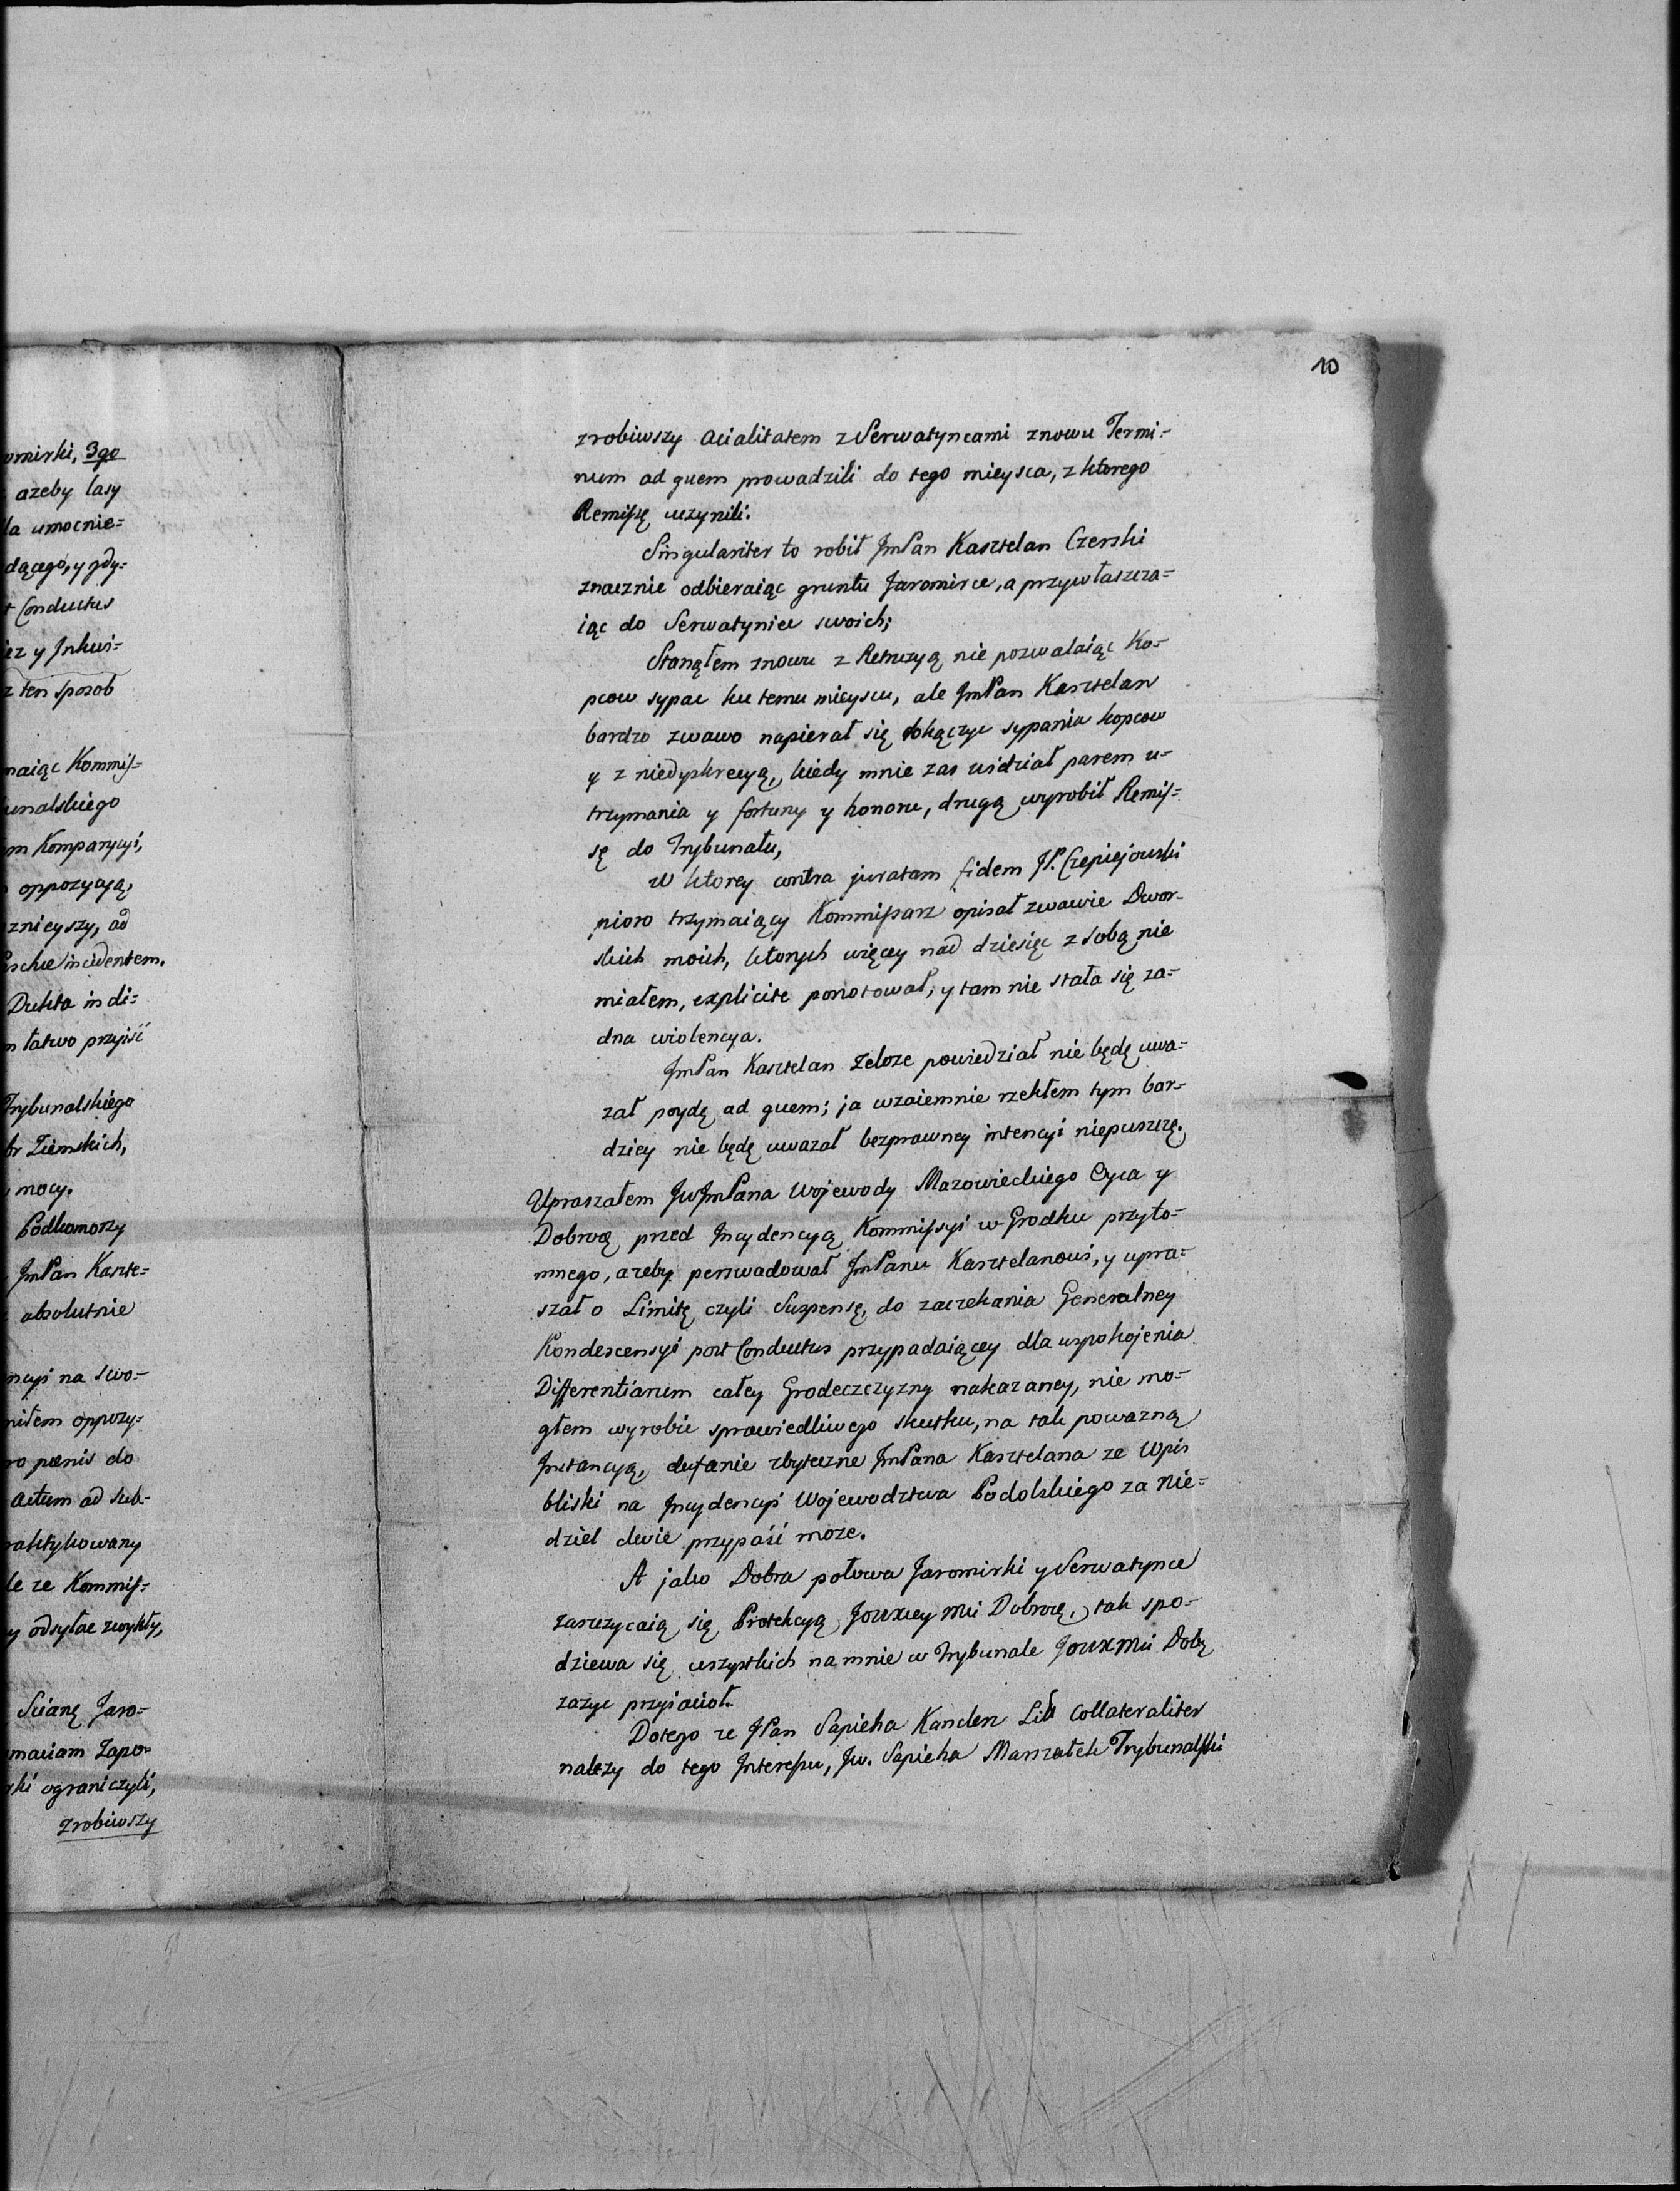 10
omirki, 3go
azeby lasy
la umocnie=
dącego, y gdy=
t Conductus
iez y Inkwi=
z ten sposob
maiąc Kommis=
unalskiego
m Komparycyi,
oppozycyą,
znieyszy, ad
incidentem.
Dukta in di=
m łatwo przyiść
Trybunalskiego
br Ziemskich,
mocy.
Podkomorzy
JmPan Kaszte=
absolutnie
ncyi na swo=
niłem oppozy=
ro pœnis do
actum ad sub=
raktykowany
le ze Kommis=
y odsyłac zwykły,
Scianę Jaro=
maciam Zapo=
rki ograniczyli,
zrobiwszy
zrobiwszy acialitatem z Serwatyncami znowu Termi=
num ad quem prowadzili do tego mieysca, z ktorego
Remissę uczynili.
Singulariter to robił JmPan Kasztelan Czerski
znacznie odbieraiąc gruntu Jaromirce, a przywłaszcza=
iąc do Serwatyniec swoich;
Stanąłem znowu z Retruzyą nie pozwalaiąc Ko=
pcow sypac ku temu mieyscu, ale JmPan Kasztelan
bardzo zwawo napierał się dokączyc sypania kopcow
y z niedyskrecyą, kiedy mnie zas widział parem u=
trzymania y fortuny y honoru, drugą wyrobił Remis=
sę do Trybunału,
W ktorey contra juratam fidem JP. Czepiejowski
pioro trzymaiący Kommissarz opisał zwawie Dwor=
skich moich, ktorych więcey nad dziesięc z sobą nie
miałem, explicite ponotował, y tam nie stała się za=
dna wiolencya.
JmPan Kasztelan zeloze powiedział nie będę uwa=
zał poydę ad quem; ja wzaiemnie rzekłem tym bar=
dziey nie będę uwazał bezprawney intencyi niepuszczę.
Upraszałem JwJmPana Wojewody Mazowieckiego Oyca y
Dobrą przed Incydencyą Kommissyi w Grodku przyto=
mnego, azeby perswadował JmPanu Kasztelanowi, y upra=
szał o Limitę czyli Suspensę, do zaczekania Generalney
Kondescensyi post Conductus przypadaiącey dla uspokojenia
Differentiarum całey Grodeczczyzny nakazaney, nie mo=
głem wyrobic sprawiedliwego skutku, na tak powazną
Instancyą, dufanie zbyteczne JmPana Kasztelana ze Wpis
bliski na Incydencyi Wojewodztwa Podolskiego za Nie=
dziel dwie przypaść moze.
A jako Dobra połowa Jaromirki y Serwatynce
zaszczycaią się Protekcyą Mci tak spo=
dziewa się wszystkich na mnie w Trybunale Mci
zazyc przyiacioł.
Dotego ze JPan Sapieha Kancler Litt Collateraliter
nalezy do tego Interessu, Jw. Sapieha Marszałek Trybunalski